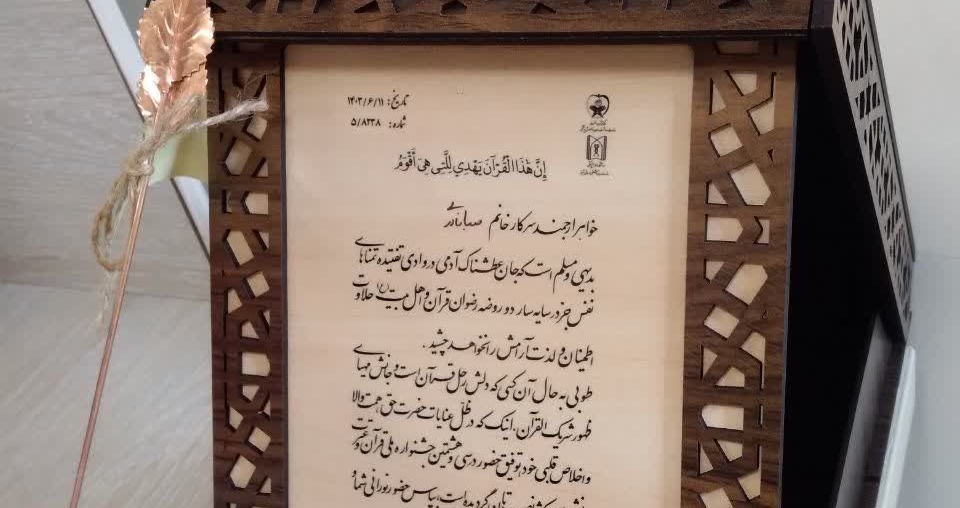 تاریخ: ۱۴۰۳/۶/۱۱
شماره: ۵/۸۲۳۸
إِنَّ هٰذَا الْقُرْآنَ يَهْدِي لِلَّتِي هِيَ أَقْوَمُ
خواهر ارجمند سرکار خانم
بدیهی و مسلم است که جان عطشناک آدمی در وادی تفتیده تمناهای
نفس جز در سایه سار دو روضه رضوان قرآن و اهل بیت (ع) حلاوت
اطمینان و لذت آرامش را نخواهد چشید.
طوبی به حال آن کسی که دلش رحل قرآن است و جانش مهیای
ظهور شریک القرآن. اینک که در ظل عنایات حضرت حق همت والا
و اخلاص قلبی خود توفیق حضور در سی و هشتمین جشنواره ملی قرآن و عترت
گردیده است، سپاس حضور نورانی شما و